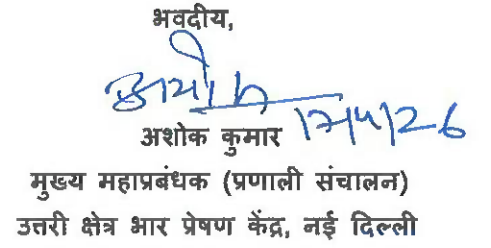 भवदीय,
अशोक
17/4/26
अशोक कुमार
मुख्य महाप्रबंधक (प्रणाली संचालन)
उत्तरी क्षेत्र भार प्रेषण केंद्र, नई दिल्ली